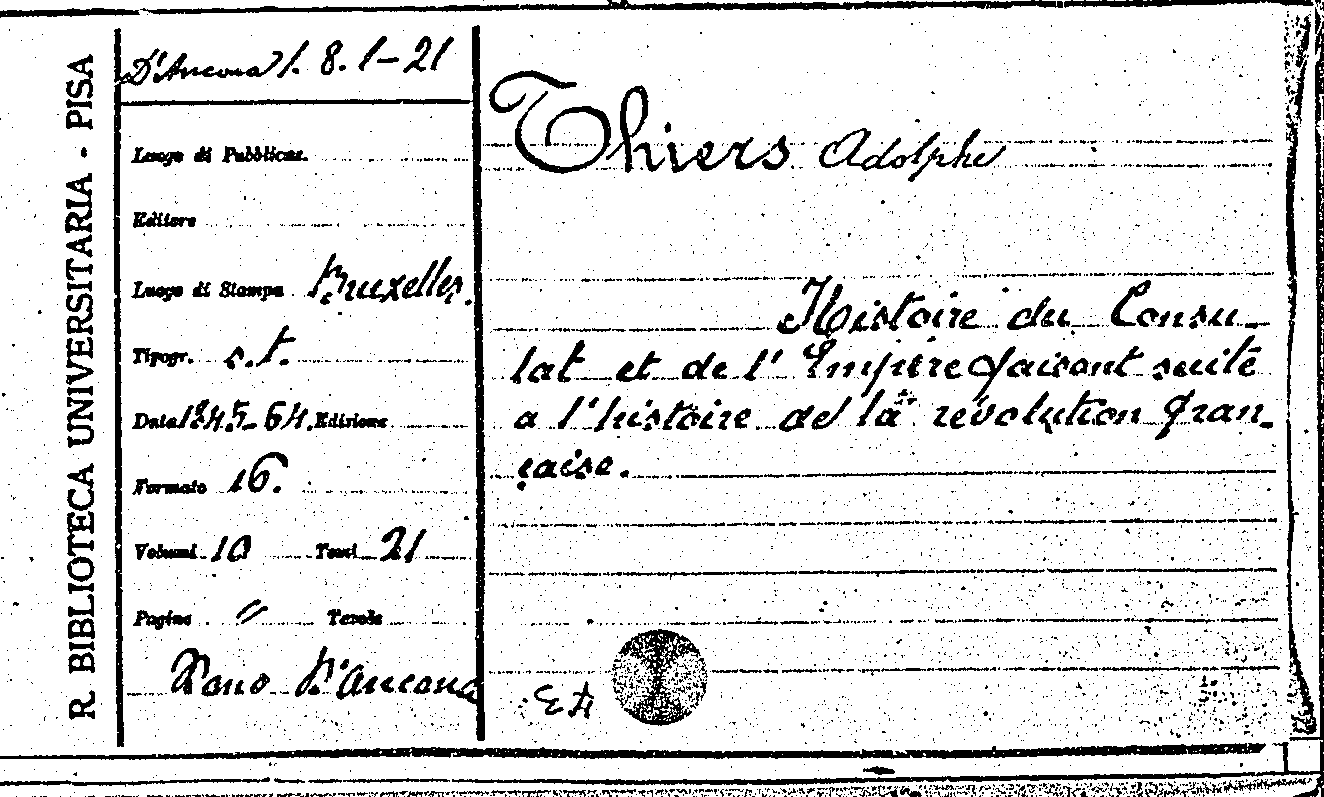 R. BIBLIOTECA UNIVERSITARIA - PISA
D'Ancona 1. 8. 1-21
Luogo di Pubblicaz.
Editore
Luogo di Stampa Bruxelles.
Tipogr. s.t.
Data 1845-64. Edizione
Formato 16.
Volumi 10 Tomi 21
Pagine " Tavole
Dono D'Ancona
Thiers Adolphe
Histoire du Consu-
lat et de l'Empire faisant suite
a l'histoire de la révolution fran-
çaise.